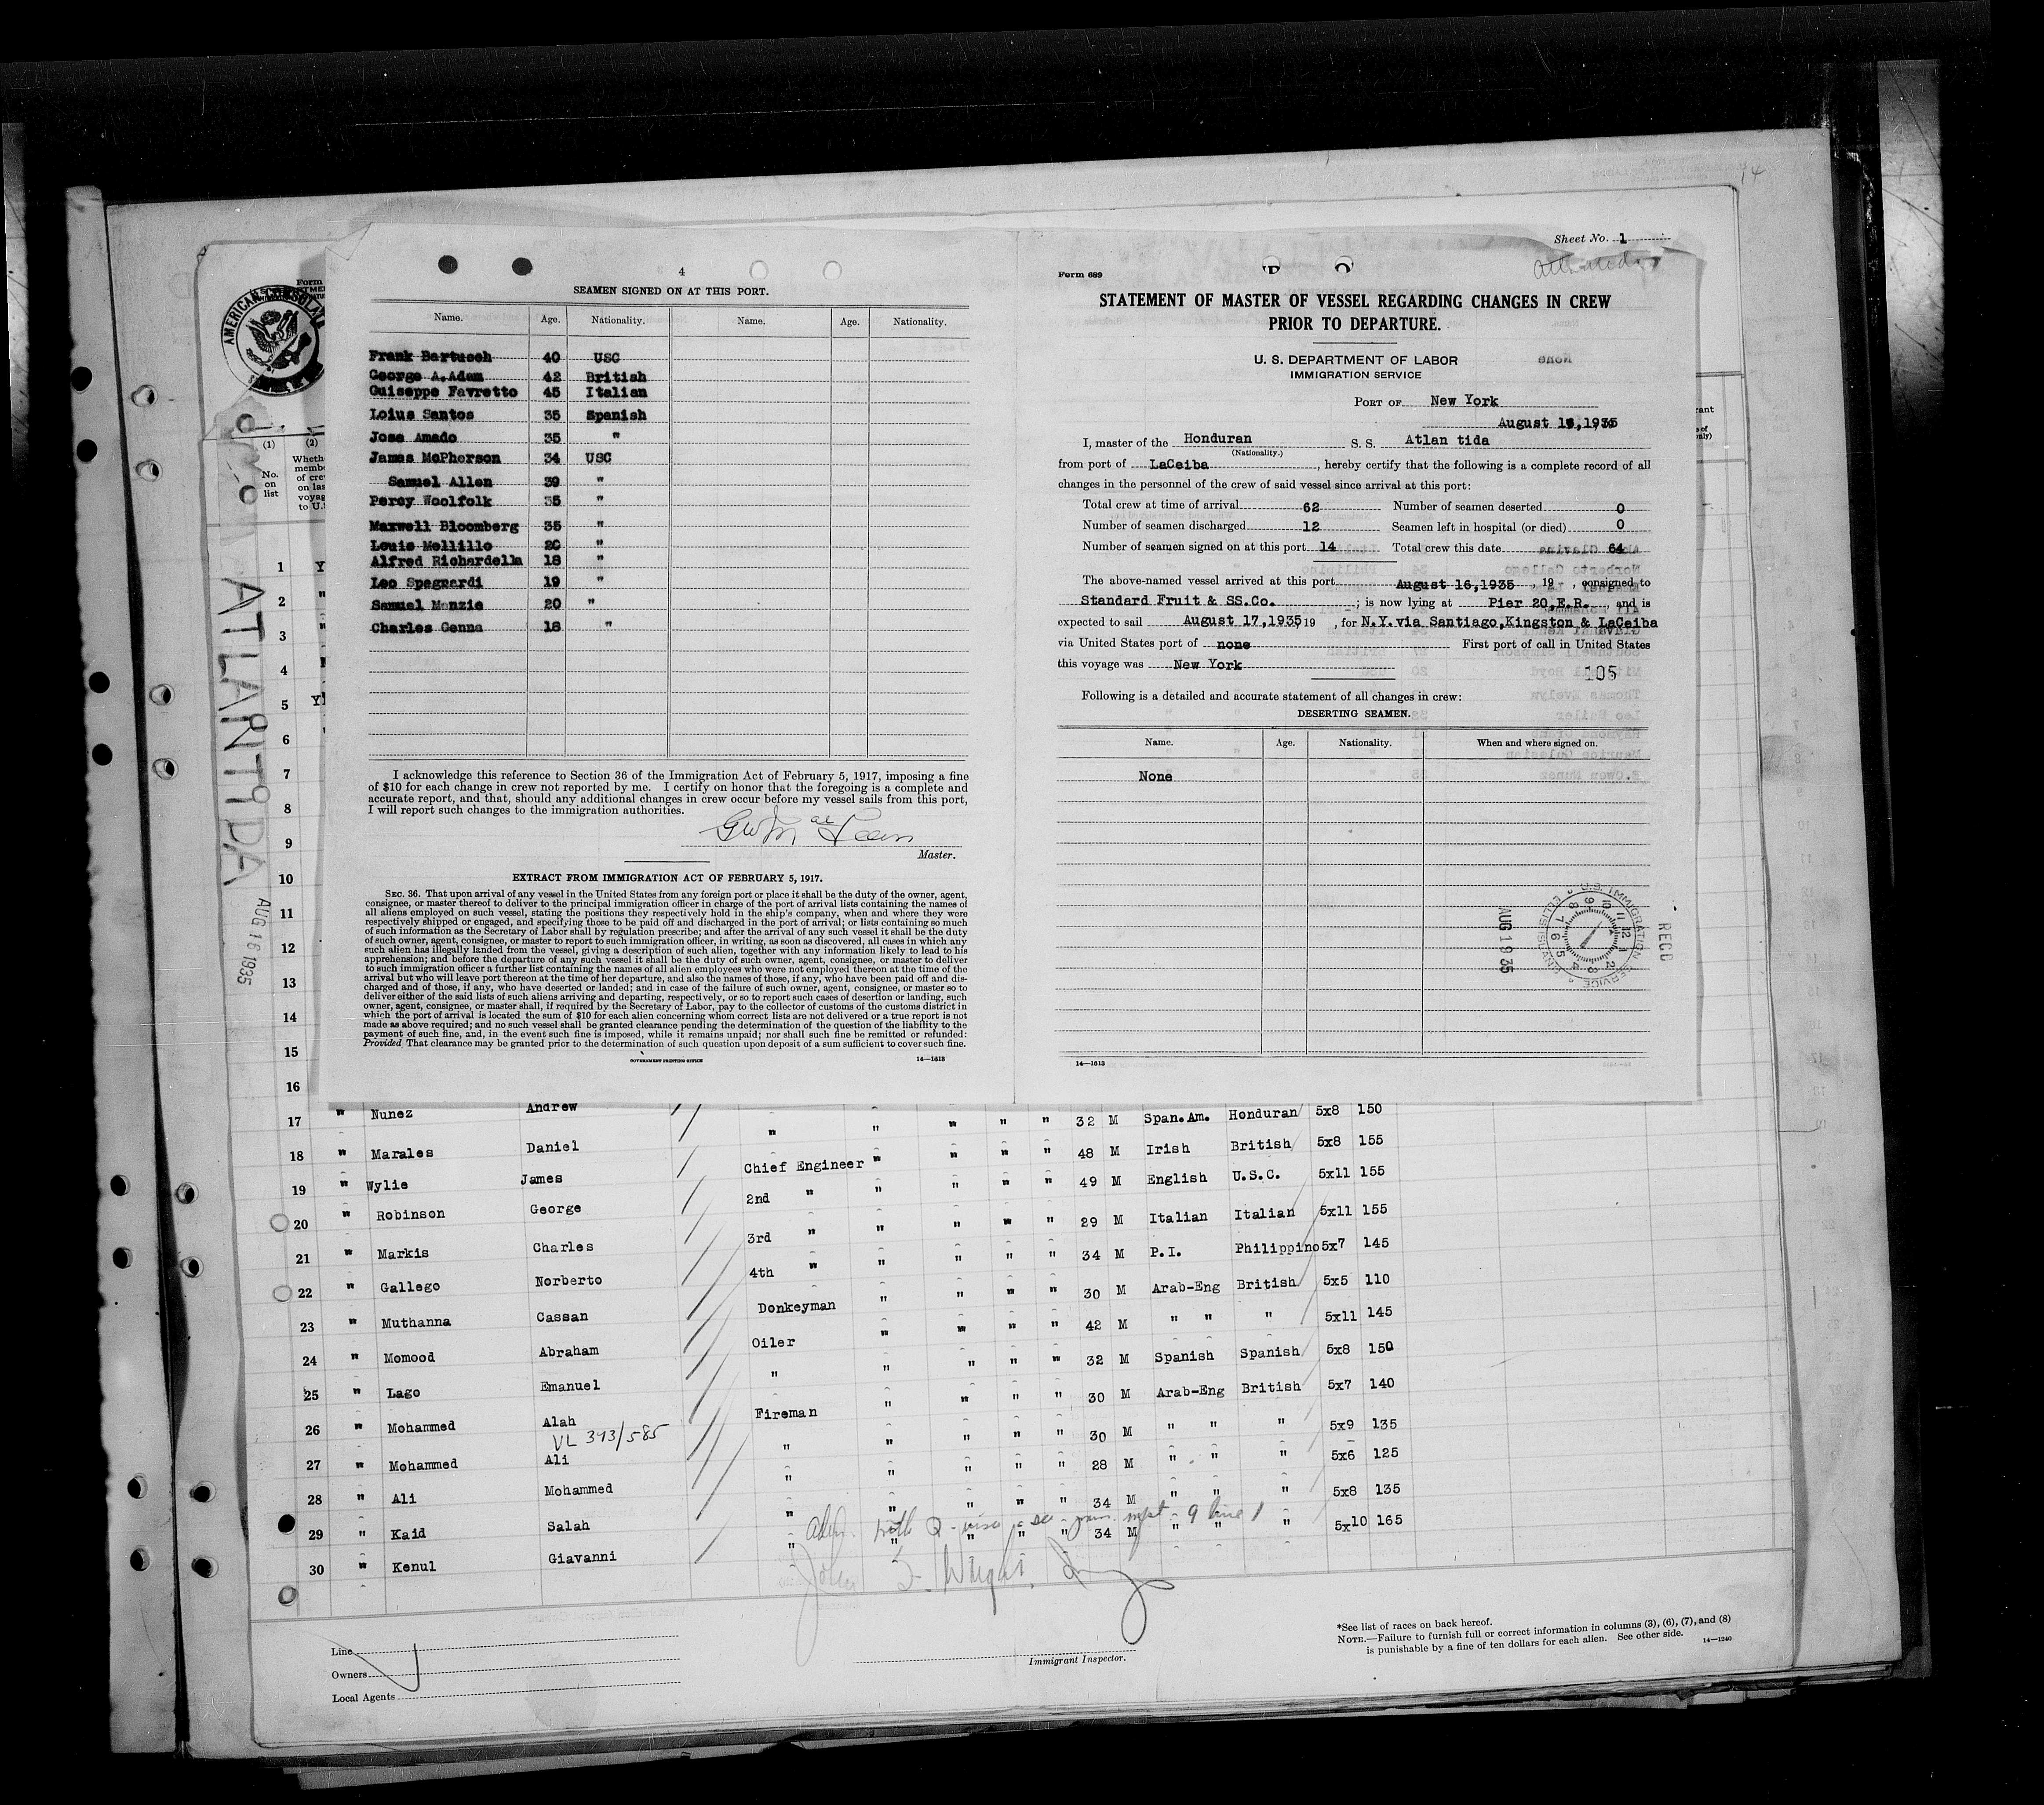 4
SEAMEN SIGNED ON AT THIS PORT.
Name. Age. Nationality. Name. Age. Nationality.
Frank Bartusch 40 USC
George A.Adam 42 British
Guiseppe Favretto 45 Italian
Loius Santos 35 Spanish
Jose Amado 35 "
James McPherson 34 USC
Samuel Allen 39 "
Percy Woolfolk 35 "
Maxwell Bloomberg 35 "
Louis Mellillo 20 "
Alfred Richardella 18 "
Leo Spagnardi 19 "
Samuel Menzie 20 "
Charles Genna 18 "
I acknowledge this reference to Section 36 of the Immigration Act of February 5, 1917, imposing a fine
of $10 for each change in crew not reported by me. I certify on honor that the foregoing is a complete and
accurate report, and that, should any additional changes in crew occur before my vessel sails from this port,
I will report such changes to the immigration authorities.
Master.
EXTRACT FROM IMMIGRATION ACT OF FEBRUARY 5, 1917.
SEC. 36. That upon arrival of any vessel in the United States from any foreign port or place it shall be the duty of the owner, agent,
consignee, or master thereof to deliver to the principal immigration officer in charge of the port of arrival lists containing the names of
all aliens employed on such vessel, stating the positions they respectively hold in the ship's company, when and where they were
respectively shipped or engaged, and specifying those to be paid off and discharged in the port of arrival; or lists containing so much
of such information as the Secretary of Labor shall by regulation prescribe; and after the arrival of any such vessel it shall be the duty
of such owner, agent, consignee, or master to report to such immigration officer, in writing, as soon as discovered, all cases in which any
such alien has illegally landed from the vessel, giving a description of such alien, together with any information likely to lead to his
apprehension; and before the departure of any such vessel it shall be the duty of such owner, agent, consignee, or master to deliver
to such immigration officer a further list containing the names of all alien employees who were not employed thereon at the time of the
arrival but who will leave port thereon at the time of her departure, and also the names of those, if any, who have been paid off and dis-
charged and of those, if any, who have deserted or landed; and in case of the failure of such owner, agent, consignee, or master so to
deliver either of the said lists of such aliens arriving and departing, respectively, or so to report such cases of desertion or landing, such
owner, agent, consignee, or master shall, if required by the Secretary of Labor, pay to the collector of customs of the customs district in
which the port of arrival is located the sum of $10 for each alien concerning whom correct lists are not delivered or a true report is not
made as above required; and no such vessel shall be granted clearance pending the determination of the question of the liability to the
payment of such fine, and, in the event such fine is imposed, while it remains unpaid; nor shall such fine be remitted or refunded:
Provided, That clearance may be granted prior to the determination of such question upon deposit of a sum sufficient to cover such fine.
GOVERNMENT PRINTING OFFICE 14—1613
Sheet No. 1
Form 689
STATEMENT OF MASTER OF VESSEL REGARDING CHANGES IN CREW
PRIOR TO DEPARTURE.
U. S. DEPARTMENT OF LABOR
IMMIGRATION SERVICE
PORT OF New York
August 1,1935
I, master of the Honduran S. S. Atlan tida
(Nationality.)
from port of LaCeiba, hereby certify that the following is a complete record of all
changes in the personnel of the crew of said vessel since arrival at this port:
Total crew at time of arrival 62 Number of seamen deserted 0
Number of seamen discharged 12 Seamen left in hospital (or died) 0
Number of seamen signed on at this port 14 Total crew this date 64
The above-named vessel arrived at this port August 16,1935, 19 , consigned to
Standard Fruit & SS.Co. ; is now lying at Pier 20,E.R. , and is
expected to sail August 17,1935, 19 , for N.Y.via Santiago,Kingston & LaCeiba
via United States port of none First port of call in United States
this voyage was New York
105
Following is a detailed and accurate statement of all changes in crew:
DESERTING SEAMEN.
Name. Age. Nationality. When and where signed on.
None
RECD
U.S. IMMIGRATION SERVICE
AUG 19 35
14—1613
Form
AMERICAN CONSULATE
ATLANTIDA
AUG 16 1935
(1) (2)
No. on list
Wheth
memb
of cre
on las
voyag
to U.
1 Y
2 "
3 "
4
5 Y
6
7
8
9
10
11
12
13
14
15
16
17 " Nunez Andrew " " " " " 32 M Span.Am. Honduran 5x8 150
18 " Marales Daniel Chief Engineer " " " " 48 M Irish British 5x8 155
19 " Wylie James 2nd " " " " " 49 M English U.S.C. 5x11 155
20 " Robinson George 3rd " " " " " 29 M Italian Italian 5x11 155
21 " Markis Charles 4th " " " " " 34 M P.I. Philippino 5x7 145
22 " Gallego Norberto Donkeyman " " " " 30 M Arab-Eng British 5x5 110
23 " Muthanna Cassan Oiler " " " " 42 M " " " 5x11 145
24 " Momood Abraham " " " " " 32 M Spanish Spanish 5x8 150
25 " Lago Emanuel Fireman " " " " 30 M Arab-Eng British 5x7 140
26 " Mohammed Alah " " " " " 30 M " " " 5x9 135
VL 393/585
27 " Mohammed Ali " " " " " 28 M " " " 5x6 125
28 " Ali Mohammed " " " " " 34 M " " " 5x8 135
29 " Kaid Salah " " " " " 34 M " " " 5x10 165
30 " Kenul Giavanni "
John Wright
Line
Owners
Local Agents
Immigrant Inspector.
*See list of races on back hereof.
NOTE.—Failure to furnish full or correct information in columns (3), (6), (7), and (8)
is punishable by a fine of ten dollars for each alien. See other side. 14—1240